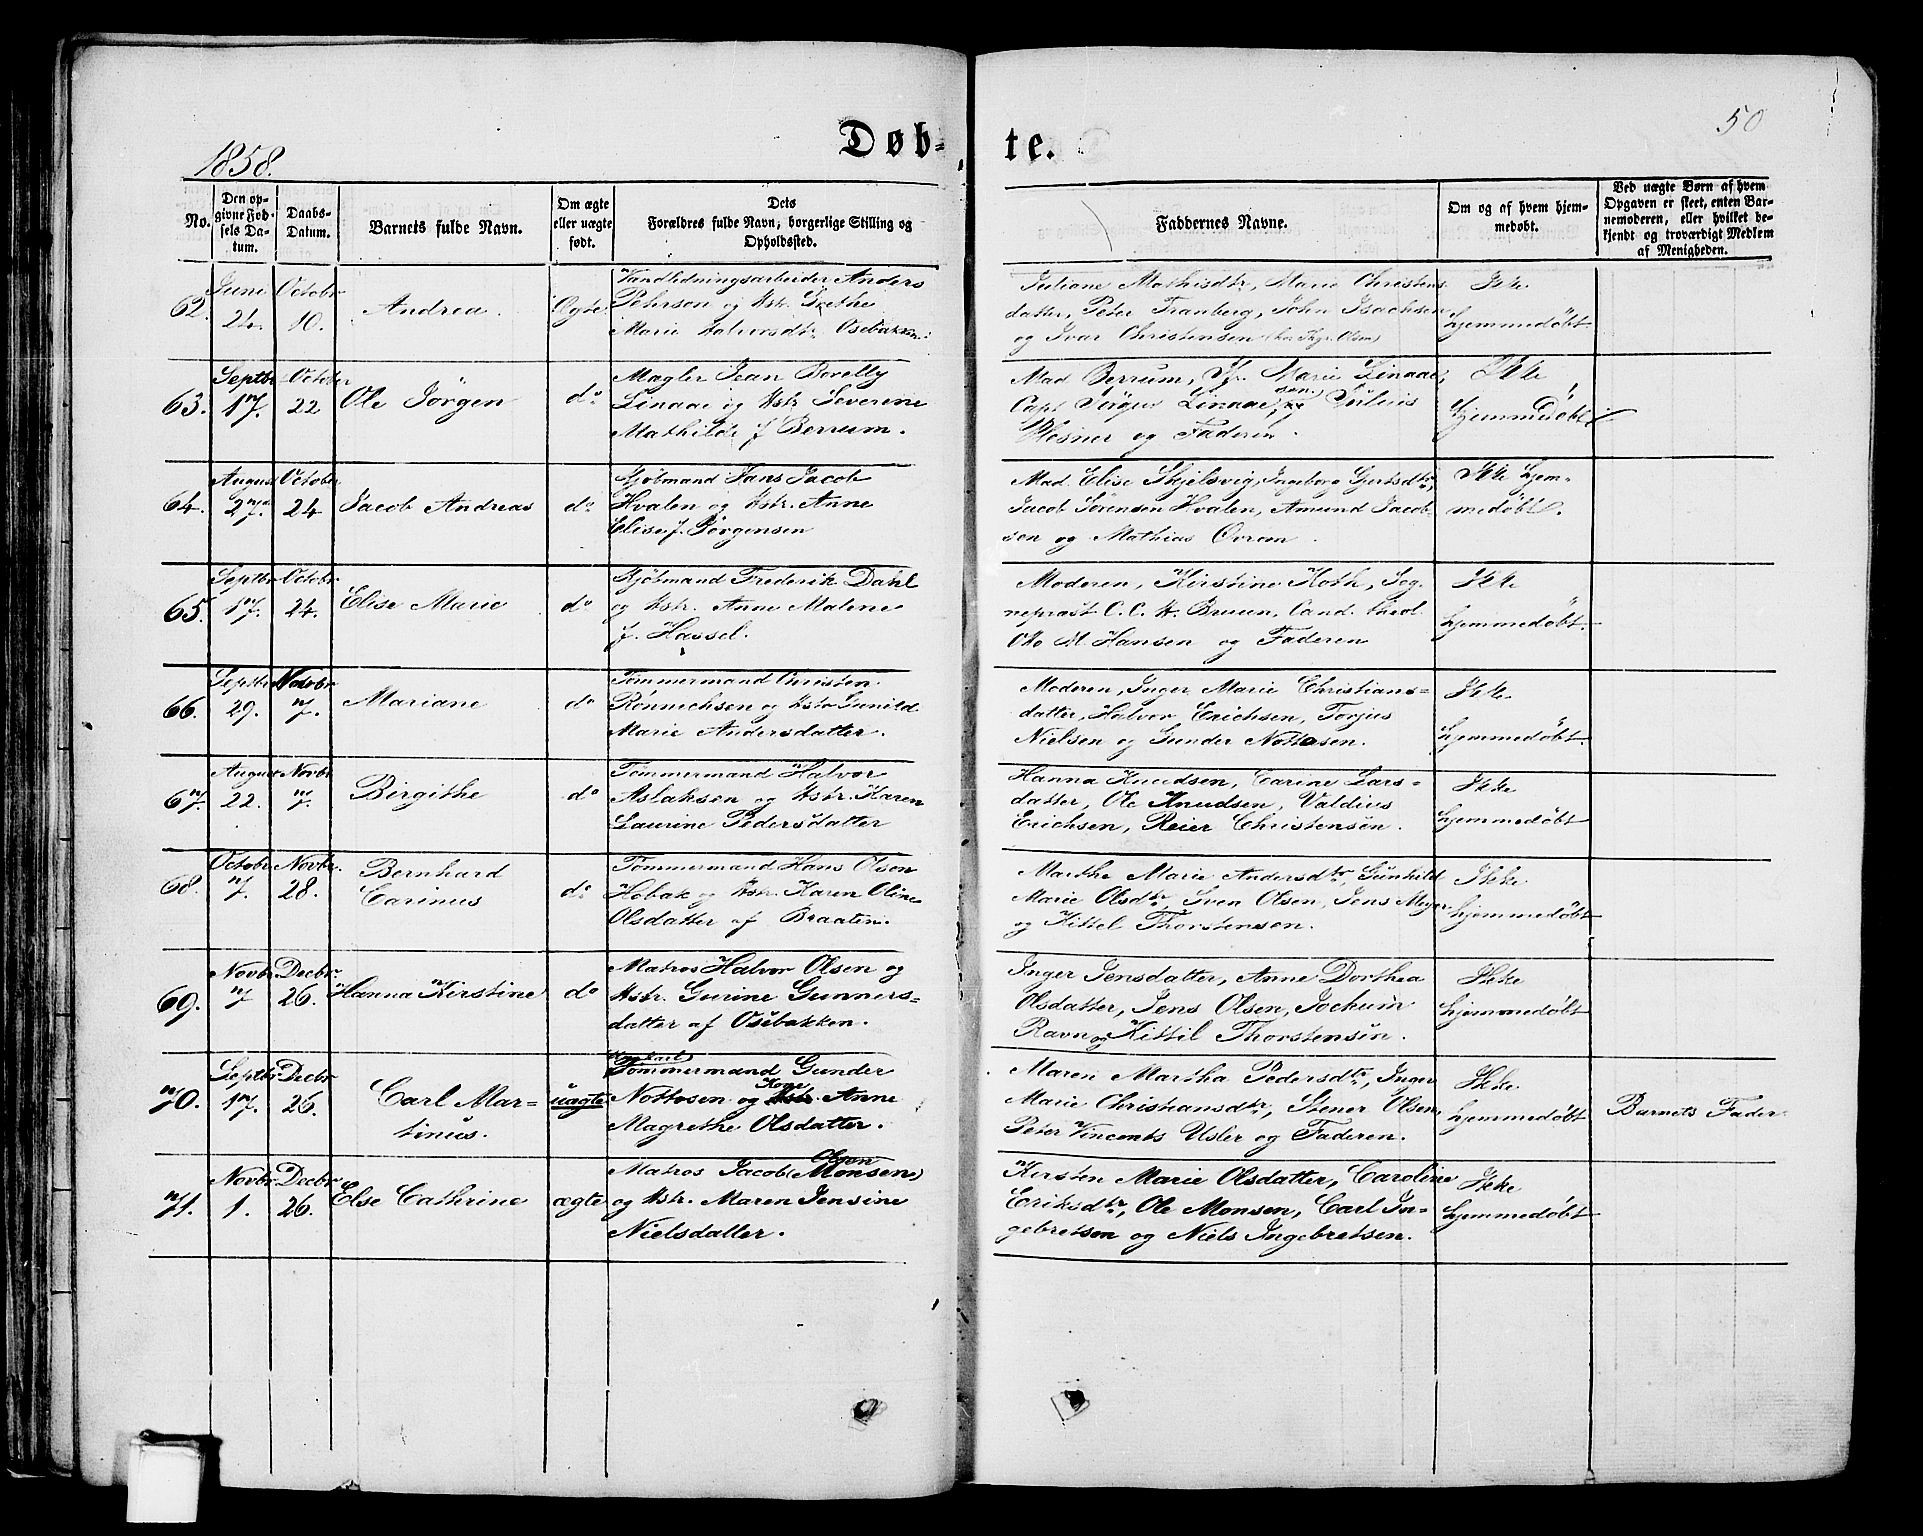 Døb- te.
50
1858.
No.
Den op-
givne Fød-
sels Da-
tum.
Daabs-
Datum.
Barnets fulde Navn.
Om ægte
eller uægte
født.
Dets
Forældres fulde Navn, borgerlige Stilling og
Opholdssted.
Faddernes Navne.
Om og af hvem hjem-
medøbt.
Ved uægte Børn af hvem
Opgaven er skeet, enten Bar-
nemoderen, eller hvilket be-
kjendt og troværdigt Medlem
af Menigheden.
62.
Juni
24.
Octobr
10.
Andrea.
Ægte
Vandledningsarbeider Anders
Pehrson og Hstr. Grethe
Marie Halvorsdtr. Osebakken.
Juliane Mathisdtr, Marie Christens
datter, Peter Tranberg, John Isachsen
og Ivar Christensen
Ikke
hjemmedøbt
63.
Septbr
17.
October
22
Ole Jörgen
do
Mægler Jean Borelly
Linaae og Hstr Severine
Mathilde f Berrum.
Mad Berrum, Jfr. Marie Linaae,
Capt Jörgen Linaae, sen. Julius
og Faderen.
Ikke
hjemmedöbt
64.
August
27de
October
24
Jacob Andreas
do
Sjömand Hans Jacob
Hvalen og Hstr. Anne
Elise f. Jörgensen
Mad. Elise Skjelsvig, Ingeborg Gjertsdtr,
Jacob Sörensen Hvalen, Amund Jacob-
sen og Mathias Ovrem.
Ikke hjem-
medöbt.
65.
Septbr
17.
Octobr
24.
Elise Marie
do
Sjömand Frederik Dahl
og Hstr. Anne Malene
f. Hassel.
Moderen, Kirstine Hoth, Sog-
nepræst C. C. H. Bruun, Cand. theol.
Otto M. Hansen og Faderen
Ikke
hjemmedöbt.
66.
Septbr
29.
Novbr
7.
Mariane
do
Tömmermand Christen
Rönnichsen og Hstr Gunild
Marie Andersdatter.
Moderen, Inger Marie Christians-
datter, Halvor Erichsen, Torjus
Nielsen og Gunder Nottosen.
Ikke
hjemmedöbt.
67.
August
22.
Novbr
7.
Birgithe
do
Tömmermand Halvor
Aslaksen og Hstr. Karen
Laurine Pedersdatter
Hanna Knudsen, Carine Lars-
datter, Ole Knudsen, Valdius
Erichsen, Reier Christensen.
Ikke
hjemmedöbt
68.
Octobr
7.
Novbr.
28.
Bernhard
Carinus
do
Tömmermand Hans Olsen
Hobæk og Hstr. Karen Oline
Olsdatter af Braaten.
Marthe Marie Andersdtr, Gunhild
Marie Olsdtr, Sven Olsen, Jens Meyer
og Kittel Thorstensen.
Ikke
hjemmedöbt
69.
Novbr.
7
Decbr.
26.
Hanna Kirstine
do
Matros Halvor Olsen og
Hstr. Gurine Gunners-
datter af Osebakken.
Inger Jensdatter, Anne Dorthea
Olsdatter, Jens Olsen, Jochum
Ravn og Kittil Thorstensen.
Ikke
hjemmedöbt
70.
Septbr
17.
Decbr
26.
Carl Mar-
tinus.
uægte
Tömmermand Gunder
Nottosen og Kone Hstr. Anne
Magrethe Olsdatter.
Maren Martha Pedersdtr, Inger
Marie Christiansdtr, Stener Olsen,
Peter Vincents Usler og Faderen.
Ikke
hjemmedöbt
Barnets Fader.
71.
Novbr.
1.
Decbr
26.
Else Cathrine
ægte
Matros Jacob (Monsen) Olsen
og Hstr. Maren Jensine
Nielsdatter.
Kirsten Marie Olsdatter, Caroline
Eriksdtr, Ole Monsen, Carl In-
gebretsen og Niels Ingebretsen.
Ikke
hjemmedöbt